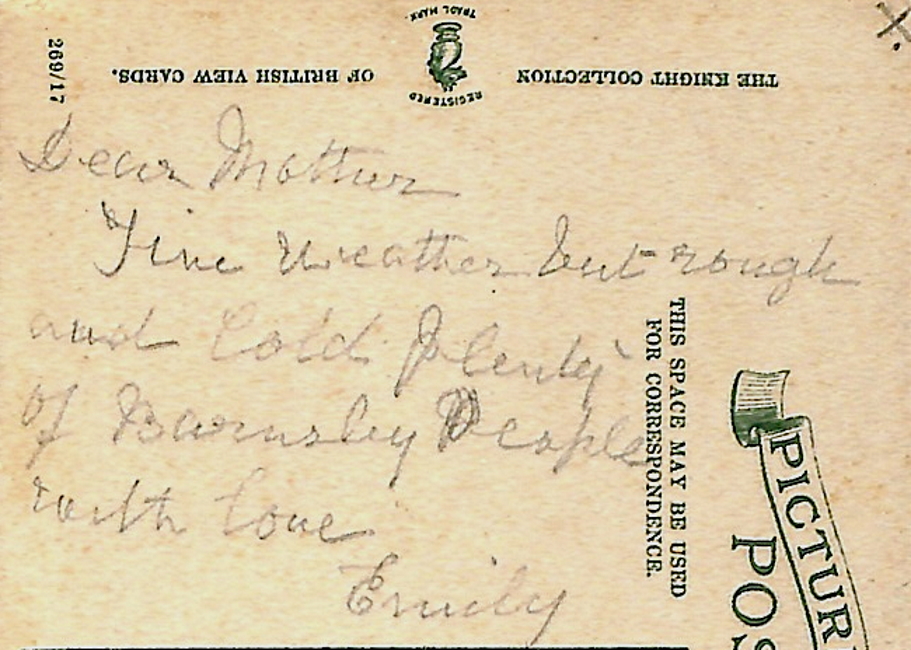 269/17
THE KNIGHT COLLECTION
OF BRITISH VIEW CARDS.
REGISTERED
TRADE MARK.
Dear Mother
Fine Weather but rough
and Cold Plenty
of Barnsley People
with love
Emily
THIS SPACE MAY BE USED
FOR CORRESPONDENCE.
PICTUR
POS